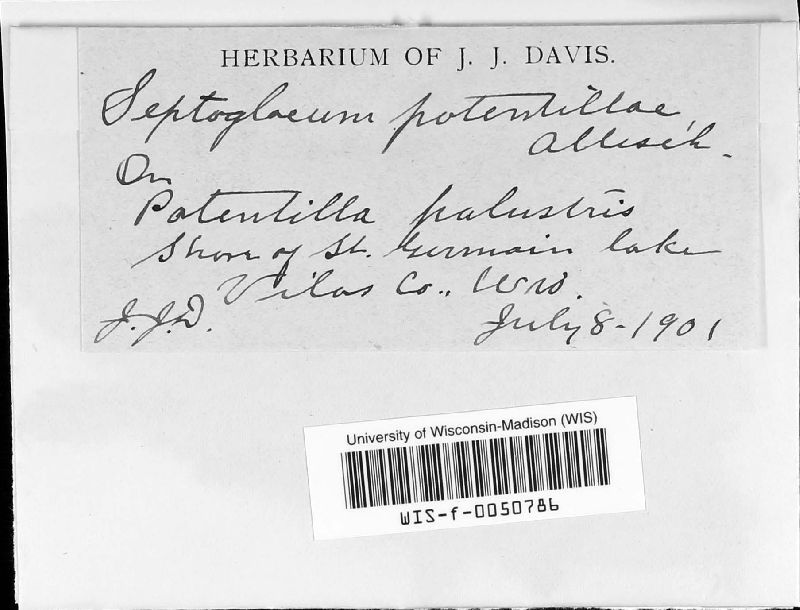 HERBARIUM OF J. J. DAVIS.
Septogloeum potentillae,
Allesch.
On
Potentilla palustris
Shore of St. Germain lake
Vilas Co., Wis.
J.J.D. July 8-1901
University of Wisconsin-Madison (WIS)
WIS-f-0050786